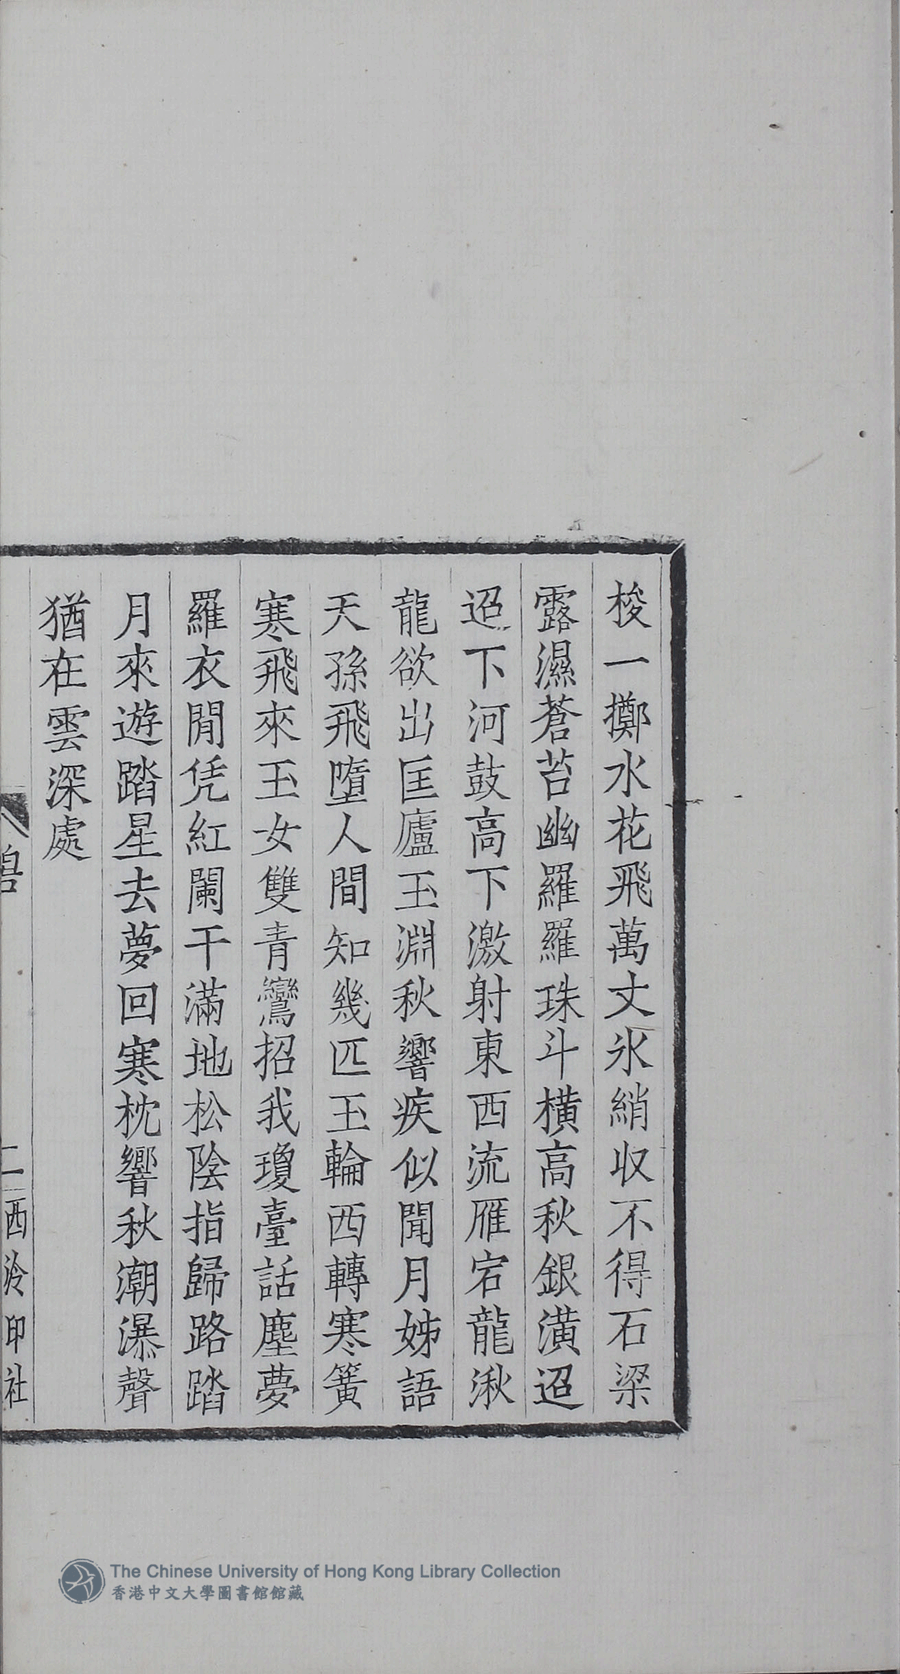 梭一擲水花飛萬丈氷綃収不得石梁
露濕蒼苔幽羅羅珠斗橫高秋銀潢迢
迢下河鼓高下激射東西流雁宕龍湫
龍欲出匡廬玉淵秋響疾似聞月姊語
天孫飛墮人間知幾匹玉輪西轉寒簧
寒飛來玉女雙青鸞招我瓊臺話塵夢
羅衣閒凭紅闌干滿地松陰指歸路踏
月來遊踏星去夢回寒枕響秋潮瀑聲
猶在雲深處
二 西泠印社
The Chinese University of Hong Kong Library Collection
香港中文大學圖書館館藏